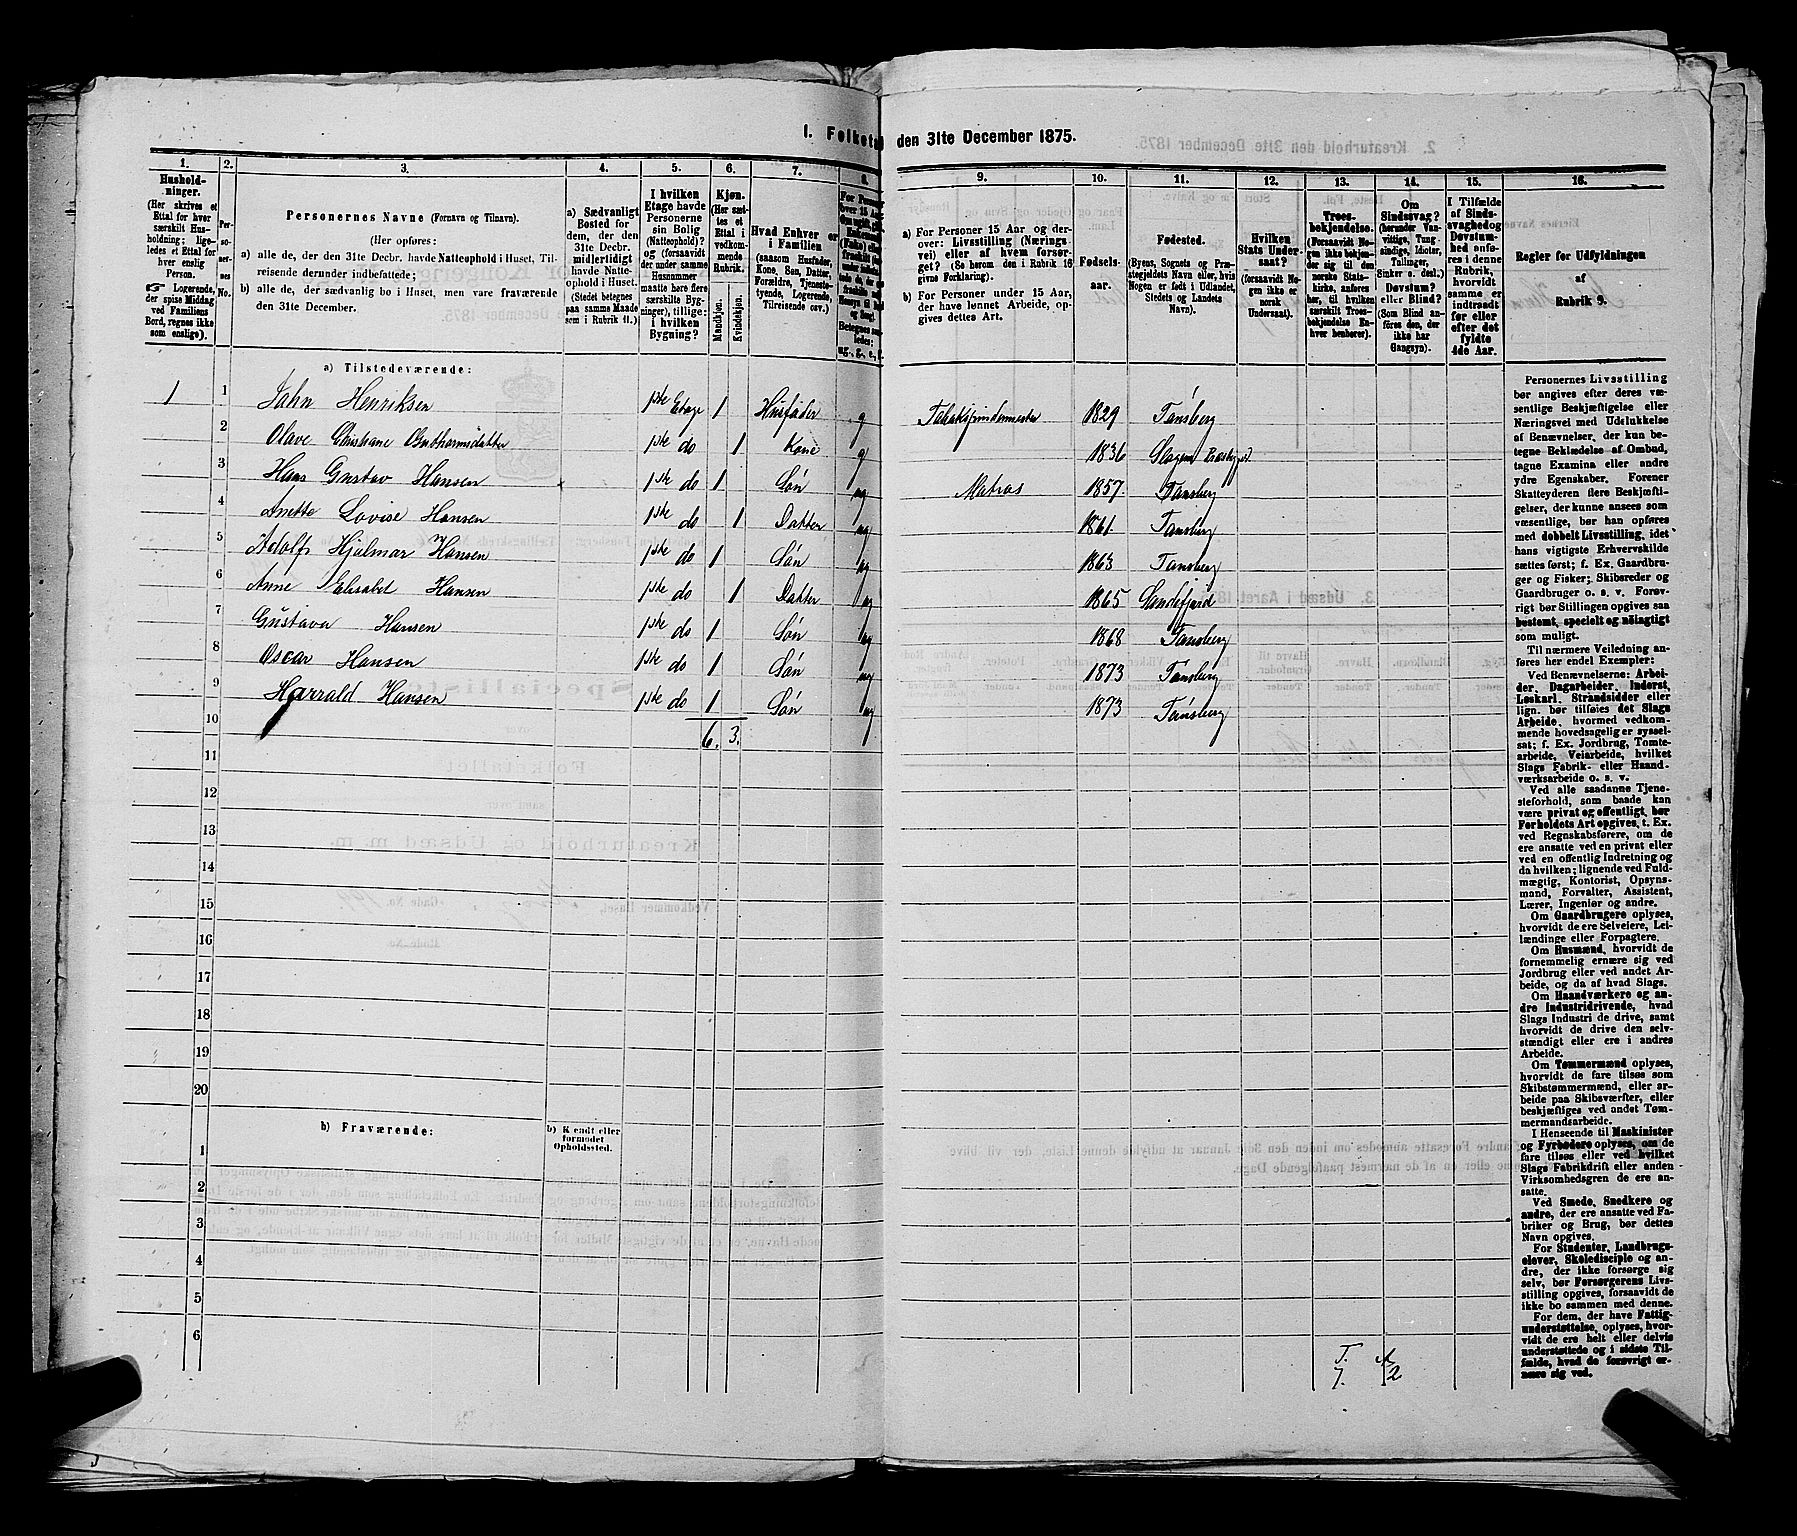 1. Folketal den 31te December 1875.
1. 2. 3. 4. 5. 6. 7. 8. 9. 10. 11. 12. 13. 14. 15. 16.
Husholdninger.
(Her skrives et Ettal for hver særskilt Husholdning; ligeledes et Ettal for hver enslig Person.
Logerende, der spise Middag ved Familiens Bord, regnes ikke som enslige).
Personernes No.
Personernes Navne (Fornavn og Tilnavn).
(Her opføres:
a) alle de, der den 31te Decbr. havde Natteophold i Huset, Tilreisende derunder indbefattede;
b) alle de, der sædvanlig bo i Huset, men vare fraværende den 31te December.
a) Sædvanligt Bosted for dem, der den 31te Decbr. midlertidigt havde Natteophold i Huset.
(Stedet betegnes paa samme Maade som i Rubrik 11.)
I hvilken Etage havde Personerne sin Bolig (Natteophold)? og (forsaavidt der under samme Husnummer maatte høre flere særskilte Bygninger), tillige: i hvilken Bygning?
Kjøn.
(Her sættes et Ettal i vedkommende Rubrik.
Mandkjøn. Kvindekjøn.
Hvad Enhver er i Familien
(saasom Husfader, Kone, Søn, Datter, Forældre, Tjenestetyende, Logerende, Tilreisende osv.)
a) For Personer 15 Aar og derover: Livsstilling (Næringsvei) eller af hvem forsørget? (Se herom den i Rubrik 16 givne Forklaring).
b) For Personer under 15 Aar, der have lønnet Arbeide, opgives dettes Art.
Fødselsaar.
Fødested.
(Byens, Sognets og Præstegjeldets Navn eller, hvis Nogen er født i Udlandet, Stedets og Landets Navn).
Hvilken Stats Undersaat?
(forsaavidt Nogen ikke er norsk Undersaat).
Troesbekjendelse.
(Forsaavidt Nogen ikke bekjender sig til den norske Statskirke, anføres her, til hvilken særskilt Troesbekjendelse Enhver henhører).
Om Sindssvag? (herunder Vanvittige, Tungsindige, Idioter, Tullinger, Sinker o. desl.) Døvstum? eller Blind? (Som Blind anføres den, der ikke har Gangsyn).
I Tilfælde af Sindssvaghed og Døvstumhed anføres i denne Rubrik, hvorvidt samme er indtraadt før eller efter det fyldte 4de Aar.
Regler for Udfyldningen af Rubrik 9.
a) Tilstedeværende:
1 1 John Henriksen 1ste Etage 1 Husfader g Tobakspindemester 1829 Tønsberg
2 Olave Christiane Guthormsdatter 1ste do 1 Kone g 1836 Slagen Præstegjed.
3 Hans Gustav Hansen 1ste do 1 Søn ug Matros 1857. Tønsberg
4 Anette Lovise Hansen 1ste do 1 Datter ug 1861 Tønsberg
5 Adolf Hjalmar Hansen 1ste do 1 Søn ug 1863 Tønsberg
6 Anne Elisabet Hansen 1ste do 1 Datter ug 1865 Sandefjord
7 Gustava Hansen 1ste do 1 Søn ug 1868 Tønsberg
8 Oscar Hansen 1ste do 1 Søn ug 1873 Tønsberg
9 Harrald Hansen 1ste do 1 Søn ug 1873 Tønsberg
10 6. 3.
11
12
13
14
15
16
17
18
19
20
b) Fraværende: b) Kjendt eller formodet Opholdssted.
1
2
3
4
5
6
T. 7.
2
Personernes Livsstilling bør angives efter deres væsentlige Beskjæftigelse eller Næringsvei med Udelukkelse af Benævnelser, der kun betegne Beklædelse af Ombud, tagne Examina eller andre ydre Egenskaber. Forener Skatteyderen flere Beskjæftigelser, der kunne ansees som væsentlige, bør han opføres med dobbelt Livsstilling, idet hans vigtigste Erhvervskilde sættes først; f. Ex. Gaardbruger og Fisker; Skibsreder og Gaardbruger o. s. v. Forøvrigt bør Stillingen opgives saa bestemt, specielt og nöiagtigt som muligt.
Til nærmere Veiledning anføres her endel Exempler:
Ved Benævnelserne: Arbeider, Dagarbeider, Inderst, Løskarl, Strandsidder eller lign. bør tilføies det Slags Arbeide, hvormed vedkommende hovedsagelig er sysselsat; f. Ex. Jordbrug, Tomtearbeide, Veiarbeide, hvilket Slags Fabrik- eller Haandværksarbeide o. s. v.
Ved alle saadanne Tjenesteforhold, som baade kan være privat og offentligt, bør Forholdets Art opgives, t. Ex. ved Regnskabsførere, om de ere ansatte ved en privat eller ved en offentlig Indretning og da hvilken; lignende ved Fuldmægtig, Kontorist, Opsynsmand, Forvalter, Assistent, Lærer, Ingeniør og andre.
Om Gaardbrugere oplyses, hvorvidt de ere Selveiere, Leilændinge eller Forpagtere.
Om Husmænd, hvorvidt de fornemmelig ernære sig ved Jordbrug eller ved andet Arbeide, og da af hvad Slags.
Om Haandværkere og andre Industridrivende, hvad Slags Industri de drive, samt hvorvidt de drive den selvstændigt eller ere i andres Arbeide.
Om Tømmermænd oplyses, hvorvidt de fare tilsøs som Skibstømmermænd, eller arbeide paa Skibsværfter, eller beskjæftiges ved andet Tømmermandsarbeide.
I Henseende til Maskinister og Fyrbødere oplyses, om de fare tilsøs eller ved hvilket Slags Fabrikdrift eller anden Virksomhedsgren de ere ansatte.
Ved Smede, Snedkere og andre, der ere ansatte ved Fabriker og Brug, bør dettes Navn opgives.
For Studenter, Landbrugselever, Skoledisciple og andre, der ikke forsørge sig selv, bør Forsørgerens Livsstilling opgives, forsaavidt de ikke bo sammen med denne.
For dem, der have Fattigunderstøttelse, oplyses, hvorvidt de ere helt eller delvis understøttede og i sidste Tilfælde, hvad de forøvrigt ernære sig ved.